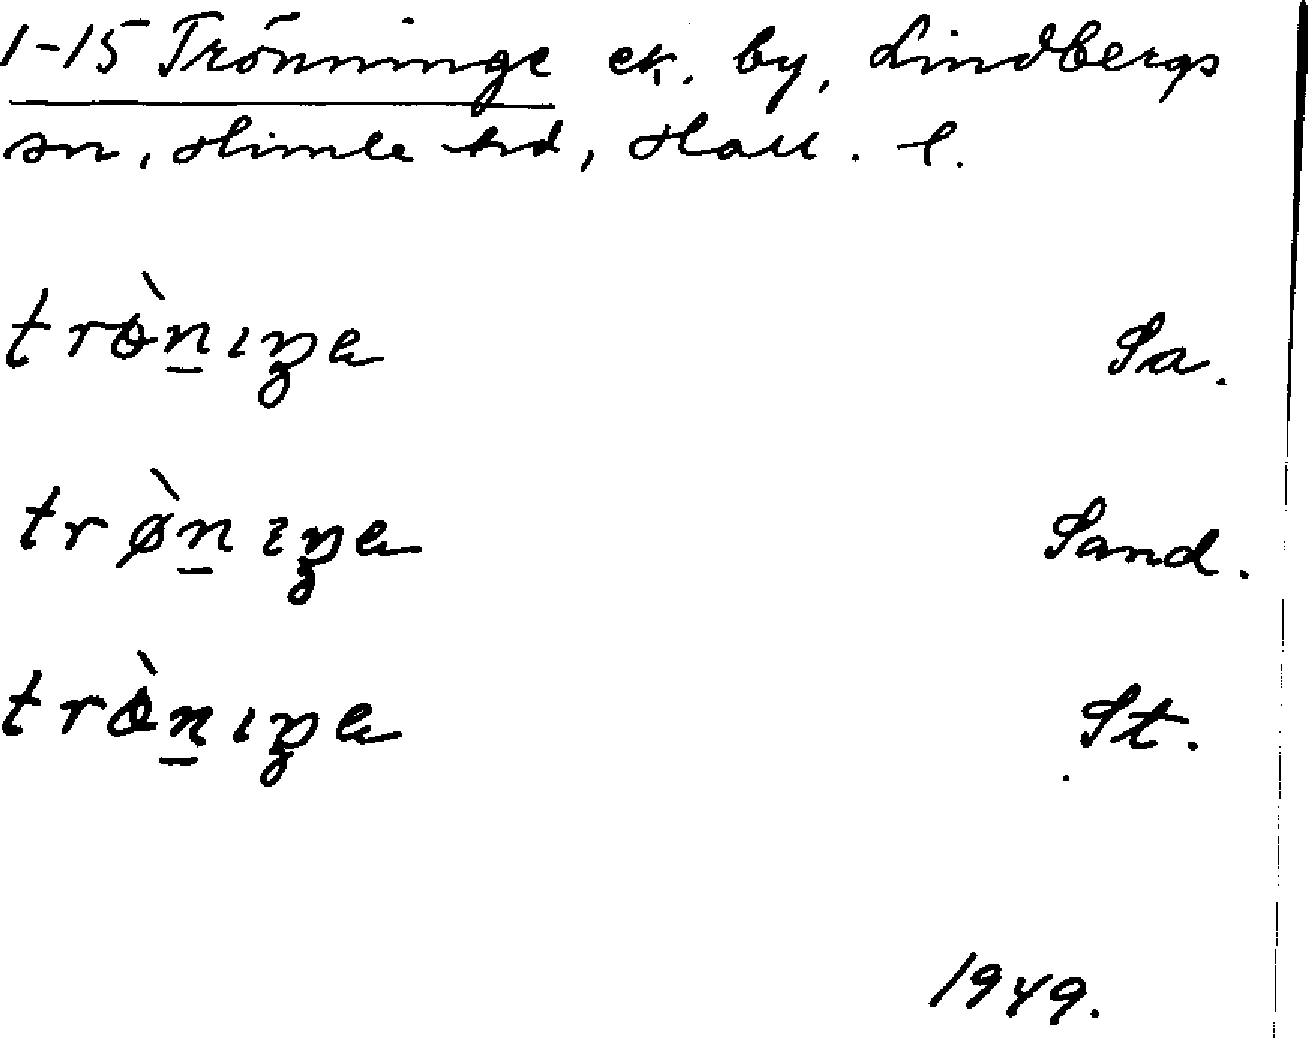 1-15 Trönninge ek. by, Lindbergs
sn, Himle hd, Hall. l.
trö̀n̲ıŋa Sa.
trø̀n̲ıŋa Sand.
trö̀n̲ıŋa St.
1949.